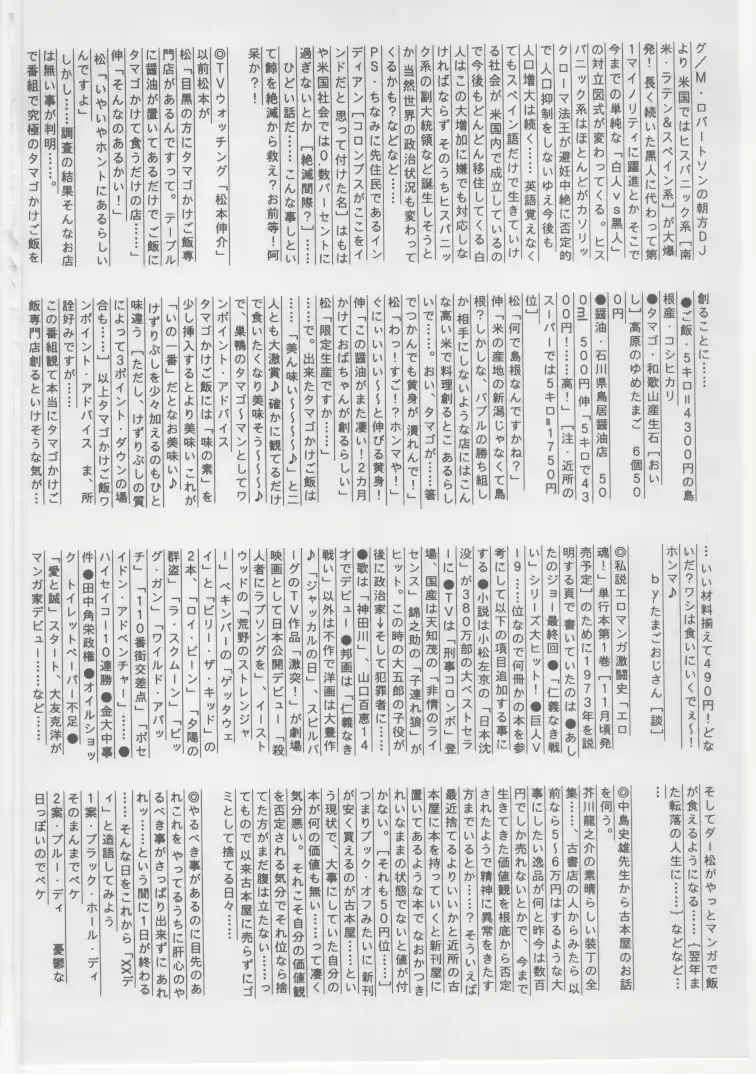 グ/M・ロバートソンの朝方DJ
より 米国ではヒスパニック系[南
米・ラテン&スペイン系]が大爆
発!長く続いた黒人に代わって第
1マイノリティに躍進とか そこで
今までの単純な「白人vs黒人」
の対立図式が変わってくる。ヒス
パニック系はほとんどがカソリッ
クローマ法王が避妊中絶に否定的
で人口抑制をしないゆえ今後も
人口増大は続く……英語覚えなく
てもスペイン語だけで生きていけ
る社会が 米国内で成立しているの
で今後もどんどん移住してくる 白
人はこの大増加に嫌でも対応しな
ければならず そのうちヒスパニッ
ク系の副大統領など誕生しそうと
か 当然世界の政治状況も変わって
くるかも?などなど……
PS・ちなみに先住民であるイン
ディアン[コロンブスがここをイ
ンドだと 思って付けた名]はもは
や米国社会では0・数パーセントに
過ぎないとか[絶滅間際?]……
ひどい話だ……こんな事しとい
て鯨を絶滅から救え?お前等!阿
呆か?!
◎TVウォッチング「松本伸介」
以前松本が
松「目黒の方にタマゴかけご飯専
門店があるんですって。テーブル
に醤油が置いてあるだけで ご飯に
タマゴかけて食うだけの店……」
伸「そんなのあるかい!」
松「いやいやホントにあるらしい
んですよ」
しかし……調査の結果そんなお店
は無い事が判明……。
で番組で究極のタマゴかけご飯を
創ることに……
●ご飯・5キロ=4300円の島
根産・コシヒカリ
●タマゴ・和歌山産生石[おい
し]高原のゆめたまご 6個50
0円
●醤油・石川県鳥居醤油店 50
0ml 500円 伸「5キロで43
00円!……高!」[注・近所の
スーパーでは5キロ=1750円
位]
松「何で島根なんですかね?」
伸「米の産地の新潟じゃなくて島
根?しかしな、バブルの勝ち組し
か 相手にしないような店にはこん
な高い米で料理創るとこ あるらし
いで……。おい、タマゴが……箸
でつかんでも黄身が 潰れんで!」
松「わっ!すご!?ホンマや!」
ぐにいいいい〜〜と伸びる黄身!
伸「この醤油がまた凄い!2カ月
かけておばちゃんが創るらしい」
松「限定生産ですか……」
……で。出来たタマゴかけご飯は
……「美ん味い〜〜〜〜〜♪」と二
人とも大激賞♪ 確かに観てるだけ
で食いたくなり美味そう〜〜〜♪
で、巣鴨のタマゴーマンとしてワ
ンポイント・アドバイス
タマゴかけご飯には「味の素」を
少し挿入するとより美味い これが
「いの一番」だとなお美味い♪
けずりぶしを少々加えるのもひと
味違う[ただし、けずりぶしの質
によって3ポイント・ダウンの場
合も……]以上タマゴかけご飯ワ
ンポイント・アドバイス ま、所
詮好みですが……
この番組観て本当にタマゴかけご
飯専門店創るといけそうな気が…
…いい材料揃えて490円!どな
いだ?ワシは食いにいくでぇ〜!
ホンマ♪
by たまごおじさん[談]
◎私説エロマンガ激闘史「エロ
魂!」単行本第1巻[11月頃発
売予定]のために1973年を説
明する頁で 書いていたのは●あし
たのジョー最終回●「仁義なき戦
い」シリーズ大ヒット!●巨人V
ー9……位なので何冊かの本を参
考にして以下の項目追加する事に
する●小説は小松左京の「日本沈
没」が380万部の大ベストセラ
ーに●TVは「刑事コロンボ」登
場、国産は天知茂の「非情のライ
センス」錦之助の「子連れ狼」が
ヒット。この時の大五郎の子役が
後に政治家→そして犯罪者に……
●歌は「神田川」、山口百恵14
才でデビュー●邦画は「仁義なき
戦い」以外は不作で洋画は大豊作
♪「ジャッカルの日」、スピルバ
ーグのTV作品「激突!」が劇場
映画として日本公開デビュー「殺
人者にラブソングを」、イースト
ウッドの「荒野のストレンジャ
ー」ペキンパーの「ゲッタウェ
イ」と「ビリー・ザ・キッド」の
2本、「ロイ・ビーン」「夕陽の
群盗」「ラ・スクムーン」「ビッ
グ・ガン」「ワイルド・アパッ
チ」「110番街交差点」「ポセ
イドン・アドベンチャー」……●
ハイセイコー10連勝●金大中事
件●田中角栄政権●オイルショッ
ク トイレットペーパー不足●
「愛と誠」スタート、大友克洋が
マンガ家デビュー……など……
そしてダー松がやっとマンガで飯
が食えるようになる……[翌年ま
た転落の人生に……]などなど…
…
◎中島史雄先生から古本屋のお話
を伺う。
芥川龍之介の素晴らしい装丁の全
集……、古書店の人からみたら 以
前なら5〜6万円はするような大
事にしたい逸品が何と昨今は数百
円でしか売れないとかで、今まで
生きてきた価値観を根底から否定
されたようで精神に異常をきたす
方までいるとか……?そういえば
最近捨てるよりいいかと近所の古
本屋に本を持っていくと新刊屋に
置いてあるような本で なおかつき
れいなままの状態でないと値が付
かない。[それも50円位……]
つまりブック・オフみたいに 新刊
が安く買えるのが古本屋……とい
う現状で、大事にしていた自分の
本が何の価値も無い……って凄く
気分悪い。 それこそ自分の価値観
を否定される気分でそれ位なら捨
てた方がまだ腹は立たない……っ
てもので 以来古本屋に売らずにゴ
ミとして捨てる日々……
◎やるべき事があるのに目先のあ
れこれを やってるうちに肝心のや
るべき事がさっぱり出来ずに あれ
れッ……という間に1日が終わる
……そんな日をこれから「XXデ
ィ」と造語してみよう
1案・ブラック・ホール・ディ
そのまんまでペケ
2案・ブルー・ディ 憂鬱な
日っぽいのでペケ